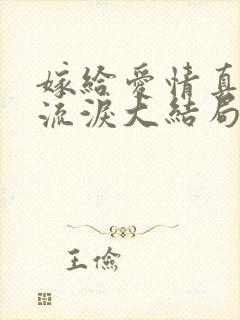 嫁給愛情真
流淚大結局
王儉